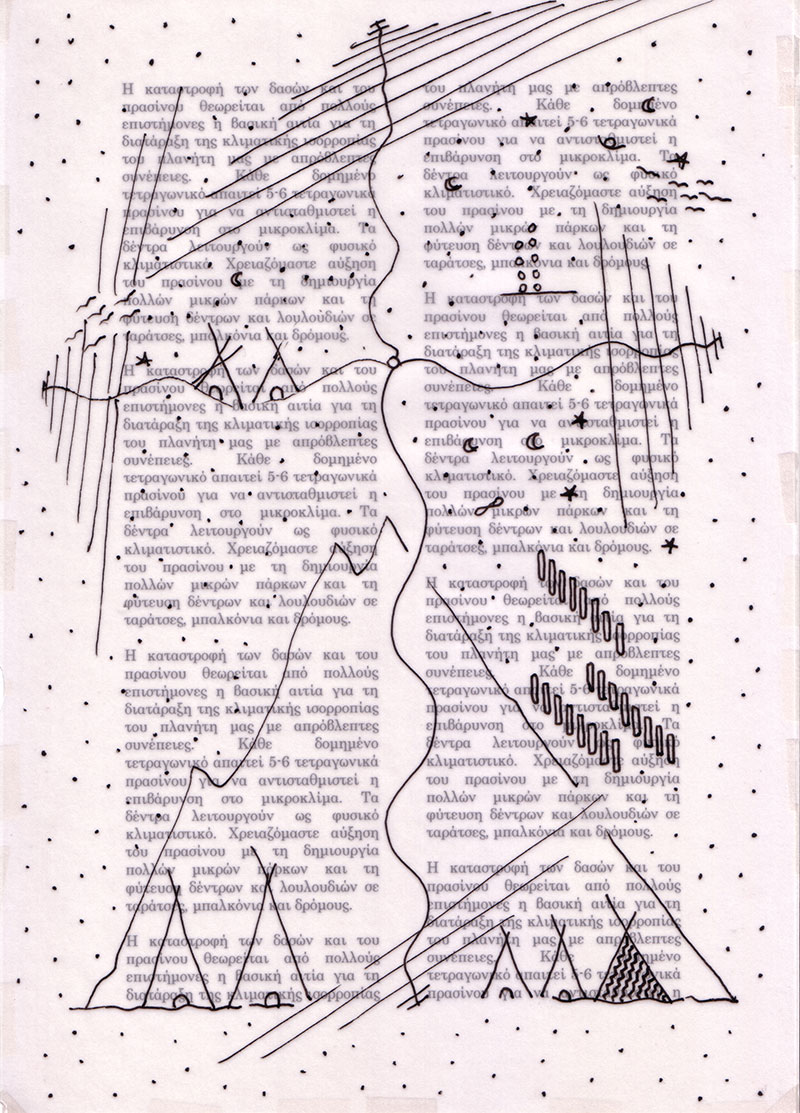 Η καταστροφή των δασών και του
πρασίνου θεωρείται από πολλούς
επιστήμονες η βασική αιτία για τη
διατάραξη της κλιματικής ισορροπίας
του πλανήτη μας με απρόβλεπτες
συνέπειες. Κάθε δομημένο
τετραγωνικό απαιτεί 5-6 τετραγωνικά
πρασίνου για να αντισταθμιστεί η
επιβάρυνση στο μικροκλίμα. Τα
δέντρα λειτουργούν ως φυσικό
κλιματιστικό. Χρειαζόμαστε αύξηση
του πρασίνου με τη δημιουργία
πολλών μικρών πάρκων και τη
φύτευση δέντρων και λουλουδιών σε
ταράτσες, μπαλκόνια και δρόμους.
Η καταστροφή των δασών και του
πρασίνου θεωρείται από πολλούς
επιστήμονες η βασική αιτία για τη
διατάραξη της κλιματικής ισορροπίας
του πλανήτη μας με απρόβλεπτες
συνέπειες. Κάθε δομημένο
τετραγωνικό απαιτεί 5-6 τετραγωνικά
πρασίνου για να αντισταθμιστεί η
επιβάρυνση στο μικροκλίμα. Τα
δέντρα λειτουργούν ως φυσικό
κλιματιστικό. Χρειαζόμαστε αύξηση
του πρασίνου με τη δημιουργία
πολλών μικρών πάρκων και τη
φύτευση δέντρων και λουλουδιών σε
ταράτσες, μπαλκόνια και δρόμους.
Η καταστροφή των δασών και του
πρασίνου θεωρείται από πολλούς
επιστήμονες η βασική αιτία για τη
διατάραξη της κλιματικής ισορροπίας
του πλανήτη μας με απρόβλεπτες
συνέπειες. Κάθε δομημένο
τετραγωνικό απαιτεί 5-6 τετραγωνικά
πρασίνου για να αντισταθμιστεί η
επιβάρυνση στο μικροκλίμα. Τα
δέντρα λειτουργούν ως φυσικό
κλιματιστικό. Χρειαζόμαστε αύξηση
του πρασίνου με τη δημιουργία
πολλών μικρών πάρκων και τη
φύτευση δέντρων και λουλουδιών σε
ταράτσες, μπαλκόνια και δρόμους.
Η καταστροφή των δασών και του
πρασίνου θεωρείται από πολλούς
επιστήμονες η βασική αιτία για τη
διατάραξη της κλιματικής ισορροπίας
του πλανήτη μας με απρόβλεπτες
συνέπειες. Κάθε δομημένο
τετραγωνικό απαιτεί 5-6 τετραγωνικά
πρασίνου για να αντισταθμιστεί η
επιβάρυνση στο μικροκλίμα. Τα
δέντρα λειτουργούν ως φυσικό
κλιματιστικό. Χρειαζόμαστε αύξηση
του πρασίνου με τη δημιουργία
πολλών μικρών πάρκων και τη
φύτευση δέντρων και λουλουδιών σε
ταράτσες, μπαλκόνια και δρόμους.
Η καταστροφή των δασών και του
πρασίνου θεωρείται από πολλούς
επιστήμονες η βασική αιτία για τη
διατάραξη της κλιματικής ισορροπίας
του πλανήτη μας με απρόβλεπτες
συνέπειες. Κάθε δομημένο
τετραγωνικό απαιτεί 5-6 τετραγωνικά
πρασίνου για να αντισταθμιστεί η
επιβάρυνση στο μικροκλίμα. Τα
δέντρα λειτουργούν ως φυσικό
κλιματιστικό. Χρειαζόμαστε αύξηση
του πρασίνου με τη δημιουργία
πολλών μικρών πάρκων και τη
φύτευση δέντρων και λουλουδιών σε
ταράτσες, μπαλκόνια και δρόμους.
Η καταστροφή των δασών και του
πρασίνου θεωρείται από πολλούς
επιστήμονες η βασική αιτία για τη
διατάραξη της κλιματικής ισορροπίας
του πλανήτη μας με απρόβλεπτες
συνέπειες. Κάθε δομημένο
τετραγωνικό απαιτεί 5-6 τετραγωνικά
πρασίνου για να αντισταθμιστεί η
επιβάρυνση στο μικροκλίμα. Τα
δέντρα λειτουργούν ως φυσικό
κλιματιστικό. Χρειαζόμαστε αύξηση
του πρασίνου με τη δημιουργία
πολλών μικρών πάρκων και τη
φύτευση δέντρων και λουλουδιών σε
ταράτσες, μπαλκόνια και δρόμους.
Η καταστροφή των δασών και του
πρασίνου θεωρείται από πολλούς
επιστήμονες η βασική αιτία για τη
διατάραξη της κλιματικής ισορροπίας
του πλανήτη μας με απρόβλεπτες
συνέπειες. Κάθε δομημένο
τετραγωνικό απαιτεί 5-6 τετραγωνικά
πρασίνου για να αντισταθμιστεί η